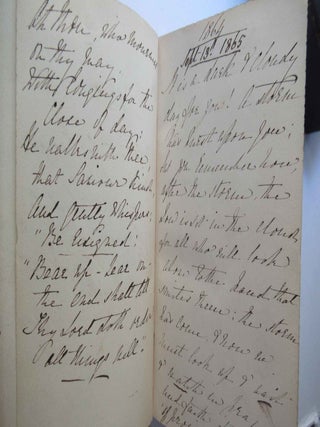 Oh thou, who mournest
on thy way
With longings for the
Close of day;
He walks with thee
that Saviour kind
And gently whispers,
"Be resigned:
"Bear up - bear on -
the end shall tell
Thy Lord doth order
all things well".
1864
Sept 13th 1865
It is a dark & cloudy
day for you! A storm
has burst upon you;
but you remember how
after the storm, the
bow is set in the clouds
for all who will look
above to the hand that
smites them: the storm
has come, & now we
must look up & wait
& watch in
and faith